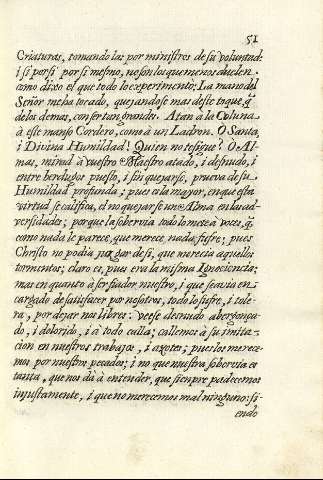 51
Criaturas, tomando las por ministros de su voluntad:
i si por si por si mesmo, no son los que menos duelen,
como dixo el que todo lo experimentò; La mano del
Señor me ha tocado, quejandose mas deste toque, q̃
de los demas, con ser tan grandes. Atan a la Coluna
à este manso Cordero, como à un Ladron. O Santa,
i Divina Humildad! Quien no te sigue? O Al-
mas, mirad à vuestro Maestro atado, i desnudo, i
entre berdugos puesto, i sin quejarse, prueva de su
Humildad profunda; pues es la mayor, en que esta
virtud se califica, el no quejarse un Alma en las ad-
versidades; porque la sobervia todo lo mete à voces, q̃
como nada le parece, que merece, nada sufre; pues
Christo no podia pagar de si, que merecia aquellos
tormentos; claro es, pues era la misma Ignocencia;
mas en quanto à ser fiador nuestro, i que se avia en-
cargado de satisfacer por nosotros, todo lo sufre, i tole-
ra, por dejar nos libres: veese desnudo abergonça-
do, i dolorido, i à todo calla; callemos à su imita-
cion en nuestros trabajos, i açotes; pues los merece-
mos por nuestros pecados; i no que nuestra sobervia es
tanta, que nos dà à entender, que sienpre padecemos
injustamente, i que no merecemos mal ninguno: si-
endo